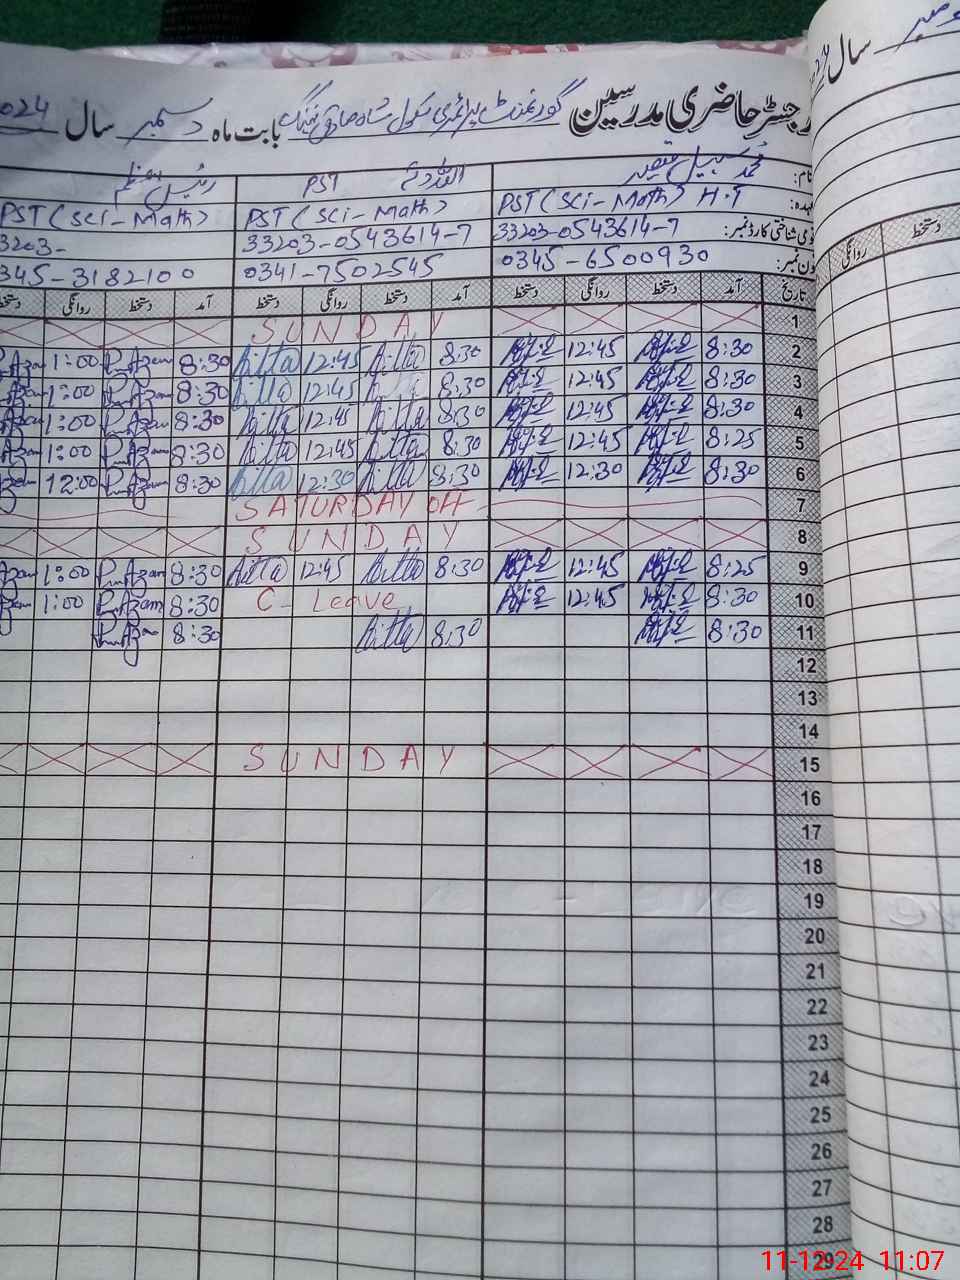 رجسٹر حاضری مدرسین گورنمنٹ پرائمری سکول شاہ صادق نہنگ بابت ماہ دسمبر سال 2024
نام: محمد سہیل قیصر
PST
عہدہ: PST (Sci-Math) H.T PST (Sci-Math) PST (Sci-Math)
قومی شناختی کارڈ نمبر: 33203-0543614-7 33203-0543614-7 33203-
فون نمبر: 0345-6500930 0341-7502545 0345-3182100
تاریخ آمد دستخط روانگی دستخط آمد دستخط روانگی دستخط آمد دستخط روانگی دستخط
1 SUNDAY
2 8:30 12:45 8:30 12:45 8:30 R.Azam 1:00
3 8:30 12:45 8:30 12:45 8:30 R.Azam 1:00
4 8:30 12:45 8:30 12:45 8:30 R.Azam 1:00
5 8:25 12:45 8:30 12:45 8:30 R.Azam 1:00
6 8:30 12:30 8:30 12:30 8:30 R.Azam 12:00
7 SATURDAY OFF
8 SUNDAY
9 8:25 12:45 8:30 12:45 8:30 R.Azam 1:00
10 8:30 12:45 C-Leave 8:30 R.Azam 1:00
11 8:30 8:30 8:30 R.Azam
12
13
14
15 SUNDAY
16
17
18
19
20
21
22
23
24
25
26
27
28
29
سال
روانگی دستخط
11-12-24 11:07